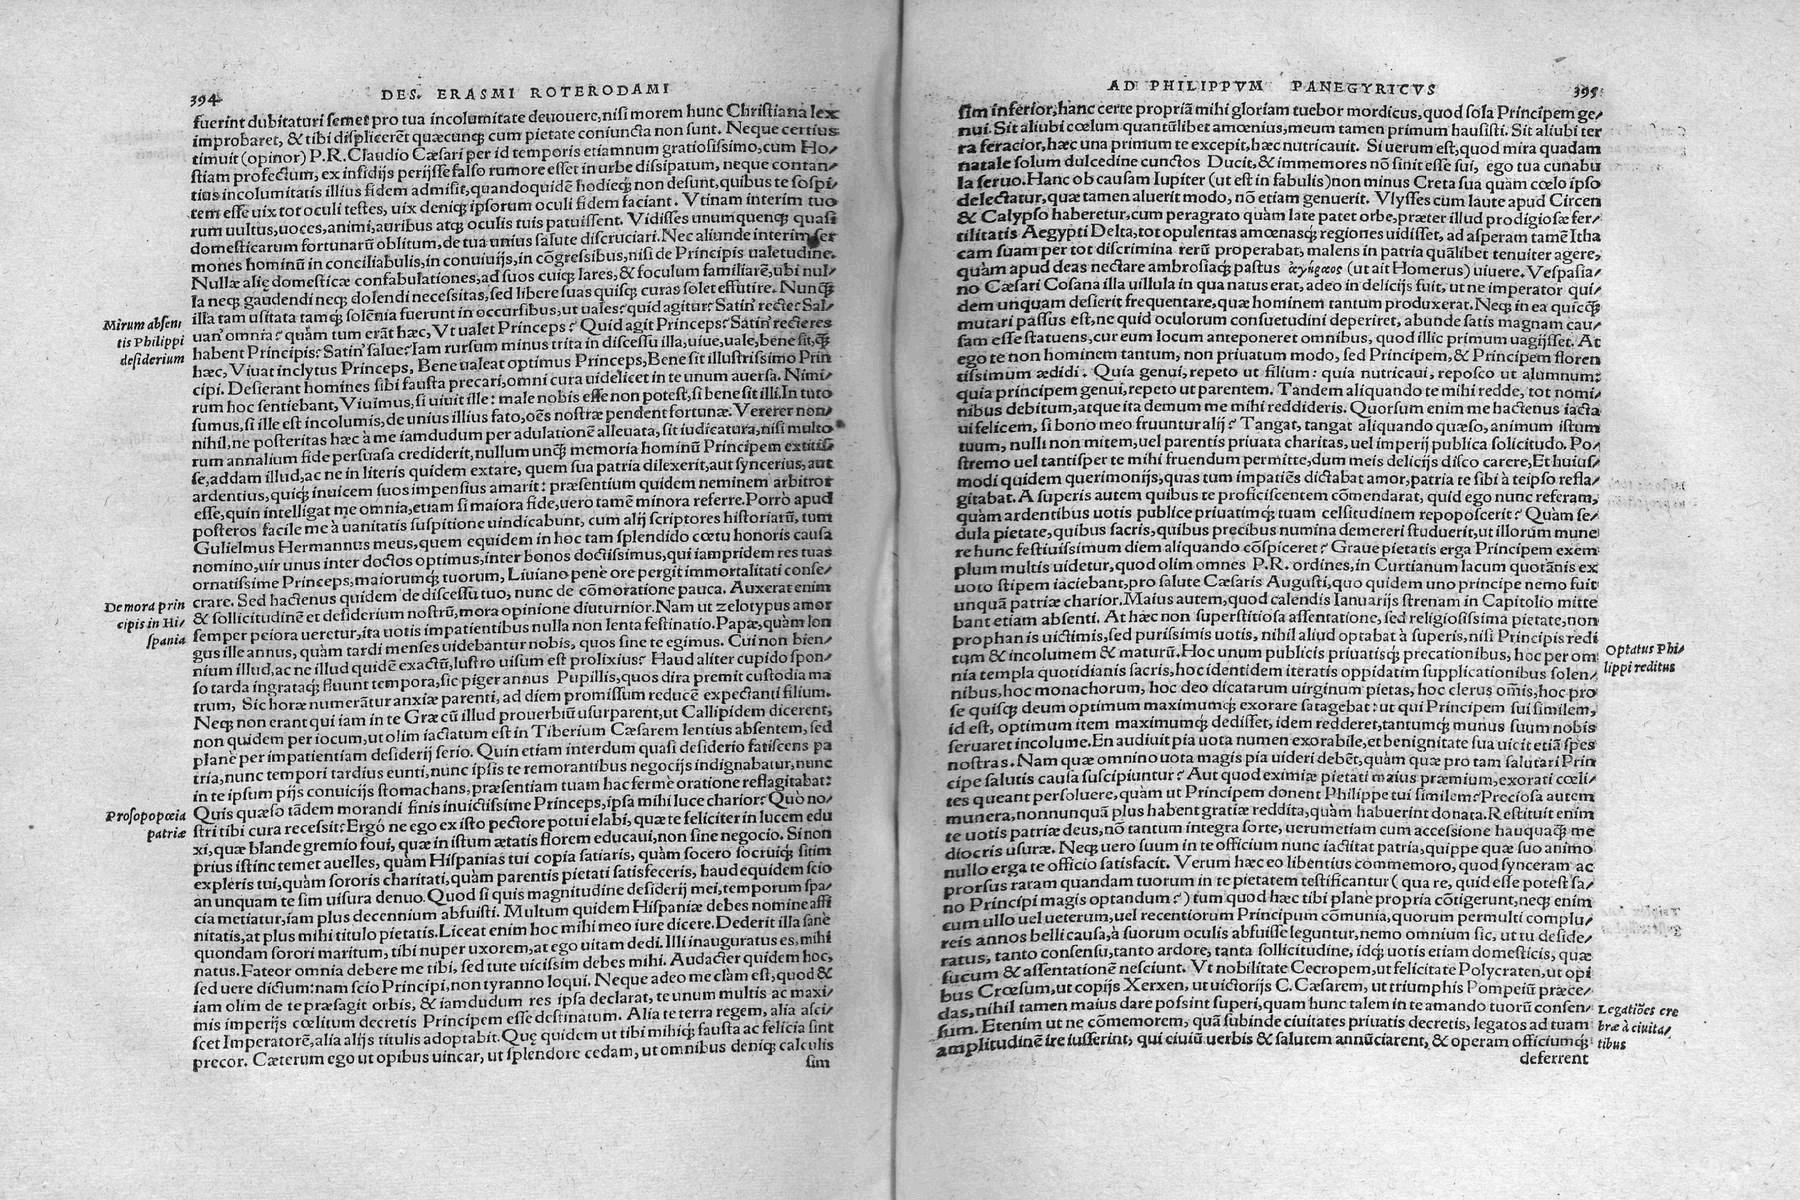 394 DES. ERASMI ROTERODAMI
fuerint dubitaturi semet pro tua incolumitate deuouere, nisi morem hunc Christiana lex
improbaret, & tibi displicerēt quæcunq; cum pietate coniuncta non sunt. Neque certius
timuit (opinor) P.R. Claudio Cæsari per id temporis etiamnum gratiosissimo, cum Ho/
stiam profectum, ex insidijs perijsse falso rumore esset in urbe dissipatum, neque contan/
tius incolumitatis illius fidem admisit, quandoquidē hodieq; non desunt, quibus te sospi/
tem esse uix tot oculi testes, uix deniq; ipsorum oculi fidem faciant. Vtinam interim tuo
rum uultus, uoces, animi, auribus atq; oculis tuis patuissent. Vidisses unumquenq; quasi
domesticarum fortunarū oblitum, de tua unius salute discruciari. Nec aliunde interim ser
mones hominū in conciliabulis, in conuiuijs, in cōgressibus, nisi de Principis ualetudine.
Nullæ alię domesticæ confabulationes, ad suos cuiq; lares, & foculum familiarē, ubi nul/
la neq; gaudendi neq; dolendi necessitas, sed libere suas quisq; curas solet effutire. Nunq̄
illa tam usitata tamq; solēnia fuerunt in occursibus, ut uales? quid agitur? Satin' recte? Sal/
uan' omnia? quàm tum erāt hæc, Vt ualet Princeps? Quid agit Princeps? Satin' recte res
habent Principis? Satin' salue? Iam rursum minus trita in discessu illa, uiue, uale, bene sit, q̄
hæc, Viuat inclytus Princeps, Bene ualeat optimus Princeps, Bene sit illustrissimo Prin
cipi. Desierant homines sibi fausta precari, omni cura uidelicet in te unum auersa. Nimi/
rum hoc sentiebant, Viuimus, si uiuit ille: male nobis esse non potest, si bene sit illi. In tuto
sumus, si ille est incolumis, de unius illius fato, oēs nostræ pendent fortunæ. Vererer non/
nihil, ne posteritas hæc à me iamdudum per adulationē alleuata, sit iudicatura, nisi multo
rum annalium fide persuasa crediderit, nullum unq̄ memoria hominū Principem extitis
se, addam illud, ac ne in literis quidem extare, quem sua patria dilexerit, aut syncerius, aut
ardentius, quiq; inuicem suos impensius amarit: præsentium quidem neminem arbitror
esse, quin intelligat me omnia, etiam si maiora fide, uero tamē minora referre. Porrò apud
posteros facile me à uanitatis suspitione uindicabunt, cum alij scriptores historiarū, tum
Gulielmus Hermannus meus, quem equidem in hoc tam splendido cœtu honoris causa
nomino, uir unus inter doctos optimus, inter bonos doctissimus, qui iampridem res tuas
ornatissime Princeps, maiorumq; tuorum, Liuiano penè ore pergit immortalitati conse/
crare. Sed hactenus quidem de discessu tuo, nunc de cōmoratione pauca. Auxerat enim
& sollicitudinē et desiderium nostrū, mora opinione diuturnior. Nam ut zelotypus amor
semper peiora ueretur, ita uotis impatientibus nulla non lenta festinatio. Papæ, quàm lon
gus ille annus, quàm tardi menses uidebantur nobis, quos sine te egimus. Cui non bien/
nium illud, ac ne illud quidē exactū, lustro uisum est prolixius? Haud aliter cupido spon/
so tarda ingrataq; fluunt tempora, sic piger annus Pupillis, quos dira premit custodia ma
trum, Sic horæ numerātur anxiæ parenti, ad diem promissum reducē expectanti filium.
Neq; non erant qui iam in te Græcū illud prouerbiū usurparent, ut Callipidem dicerent,
non quidem per iocum, ut olim iactatum est in Tiberium Cæsarem lentius absentem, sed
planè per impatientiam desiderij serio. Quin etiam interdum quasi desiderio fatiscens pa
tria, nunc tempori tardius eunti, nunc ipsis te remorantibus negocijs indignabatur, nunc
in te ipsum pijs conuicijs stomachans, præsentiam tuam hac fermè oratione reflagitabat:
Quis quæso tādem morandi finis inuictissime Princeps, ipsa mihi luce charior? Quò no/
stri tibi cura recessit? Ergó ne ego ex isto pectore potui elabi, quæ te feliciter in lucem edu
xi, quæ blande gremio foui, quæ in istum ætatis florem educaui, non sine negocio. Si non
prius istinc temet auelles, quàm Hispanias tui copia satiaris, quàm socero socruiq; sitim
expleris tui, quàm sororis charitati, quàm parentis pietati satisfeceris, haud equidem scio
an unquam te sim uisura denuo. Quod si quis magnitudine desiderij mei, temporum spa/
cia metiatur, iam plus decennium abfuisti. Multum quidem Hispaniæ debes nomine affi
nitatis, at plus mihi titulo pietatis. Liceat enim hoc mihi meo iure dicere. Dederit illa sanè
quondam sorori maritum, tibi nuper uxorem, at ego uitam dedi. Illi inauguratus es, mihi
natus. Fateor omnia debere me tibi, sed tute uicissim debes mihi. Audacter quidem hoc,
sed uere dictum: nam scio Principi, non tyranno loqui. Neque adeo me clàm est, quod &
iam olim de te præsagit orbis, & iamdudum res ipsa declarat, te unum multis ac maxi/
mis imperijs cœlitum decretis Principem esse destinatum. Alia te terra regem, alia asci/
scet Imperatorē, alia alijs titulis adoptabit. Quę quidem ut tibi mihiq; fausta ac felicia sint
precor. Cæterum ego ut opibus uincar, ut splendore cedam, ut omnibus deniq; calculis
sim
Mirum absen/
tis Philippi
desiderium
De mora prin
cipis in Hi/
spania
Prosopopœia
patriæ
AD PHILIPPVM PANEGYRICVS 395
sim inferior, hanc certe propriā mihi gloriam tuebor mordicus, quod sola Principem ge/
nui. Sit aliubi cœlum quantūlibet amœnius, meum tamen primum hausisti. Sit aliubi ter
ra feracior, hæc una primum te excepit, hæc nutricauit. Si uerum est, quod mira quadam
natale solum dulcedine cunctos Ducit, & immemores nō sinit esse sui, ego tua cunabu
la seruo. Hanc ob causam Iupiter (ut est in fabulis) non minus Creta sua quàm cœlo ipso
delectatur, quæ tamen aluerit modo, nō etiam genuerit. Vlysses cum laute apud Circen
& Calypso haberetur, cum peragrato quàm late patet orbe, præter illud prodigiosæ fer/
tilitatis Aegypti Delta, tot opulentas amœnasq; regiones uidisset, ad asperam tamē Itha
cam suam per tot discrimina rerū properabat, malens in patria quālibet tenuiter agere,
quàm apud deas nectare ambrosiaq; pastus ἀγήραος (ut ait Homerus) uiuere. Vespasia/
no Cæsari Cosana illa uillula in qua natus erat, adeo in delicijs fuit, ut ne imperator qui/
dem unquam desierit frequentare, quæ hominem tantum produxerat. Neq; in ea quicq̄
mutari passus est, ne quid oculorum consuetudini deperiret, abunde satis magnam cau/
sam esse statuens, cur eum locum anteponeret omnibus, quod illic primum uagijsset. At
ego te non hominem tantum, non priuatum modo, sed Principem, & Principem floren
tissimum ædidi. Quia genui, repeto ut filium: quia nutricaui, reposco ut alumnum:
quia principem genui, repeto ut parentem. Tandem aliquando te mihi redde, tot nomi/
nibus debitum, atque ita demum me mihi reddideris. Quorsum enim me hactenus iacta
ui felicem, si bono meo fruuntur alij? Tangat, tangat aliquando quæso, animum istum
tuum, nulli non mitem, uel parentis priuata charitas, uel imperij publica solicitudo. Po/
stremo uel tantisper te mihi fruendum permitte, dum meis delicijs disco carere, Et huius/
modi quidem querimonijs, quas tum impatiēs dictabat amor, patria te sibi à teipso refla/
gitabat. A superis autem quibus te proficiscentem cōmendarat, quid ego nunc referam,
quàm ardentibus uotis publice priuatimq; tuam celsitudinem repoposcerit? Quàm se/
dula pietate, quibus sacris, quibus precibus numina demereri studuerit, ut illorum mune
re hunc festiuissimum diem aliquando cōspiceret? Graue pietatis erga Principem exem
plum multis uidetur, quod olim omnes P.R. ordines, in Curtianum lacum quotānis ex
uoto stipem iaciebant, pro salute Cæsaris Augusti, quo quidem uno principe nemo fuit
unquā patriæ charior. Maius autem, quod calendis Ianuarijs strenam in Capitolio mitte
bant etiam absenti. At hæc non superstitiosa assentatione, sed religiosissima pietate, non
prophanis uictimis, sed purissimis uotis, nihil aliud optabat à superis, nisi Principis redi
tum & incolumem & maturū. Hoc unum publicis priuatisq; precationibus, hoc per om
nia templa quotidianis sacris, hoc identidem iteratis oppidatim supplicationibus solen/
nibus, hoc monachorum, hoc deo dicatarum uirginum pietas, hoc clerus om̄is, hoc pro
se quisq; deum optimum maximumq; exorare satagebat: ut qui Principem sui similem,
id est, optimum item maximumq; dedisset, idem redderet, tantumq; munus suum nobis
seruaret incolume. En audiuit pia uota numen exorabile, et benignitate sua uicit etiā spes
nostras. Nam quæ omnino uota magis pia uideri debēt, quàm quæ pro tam salutari Prin
cipe salutis causa suscipiuntur? Aut quod eximiæ pietati maius præmium, exorati cœli/
tes queant persoluere, quàm ut Principem donent Philippe tui similem? Preciosa autem
munera, nonnunquā plus habent gratiæ reddita, quàm habuerint donata. Restituit enim
te uotis patriæ deus, nō tantum integra sorte, uerumetiam cum accessione hauquaq̄ me
diocris usuræ. Neq; uero suum in te officium nunc iactitat patria, quippe quæ suo animo
nullo erga te officio satisfacit. Verum hæc eo libentius commemoro, quod synceram ac
prorsus raram quandam tuorum in te pietatem testificantur (qua re, quid esse potest sa/
no Principi magis optandum?) tum quod hæc tibi planè propria cōtigerunt, neq; enim
cum ullo uel ueterum, uel recentiorum Principum cōmunia, quorum permulti complu/
reis annos belli causa, à suorum oculis abfuisse leguntur, nemo omnium sic, ut tu deside/
ratus, tanto consensu, tanto ardore, tanta sollicitudine, idq; uotis etiam domesticis, quæ
fucum & assentationē nesciunt. Vt nobilitate Cecropem, ut felicitate Polycraten, ut opi
bus Crœsum, ut copijs Xerxen, ut uictorijs C. Cæsarem, ut triumphis Pompeiū præce/
das, nihil tamen maius dare possint superi, quam hunc talem in te amando tuorū consen/
sum. Etenim ut ne cōmemorem, quā subinde ciuitates priuatis decretis, legatos ad tuam
amplitudinē ire iusserint, qui ciuiū uerbis & salutem annūciarent, & operam officiumq;
deferrent
Optatus Phi/
lippi reditus
Legatiōes cre
bræ à ciuita/
tibus